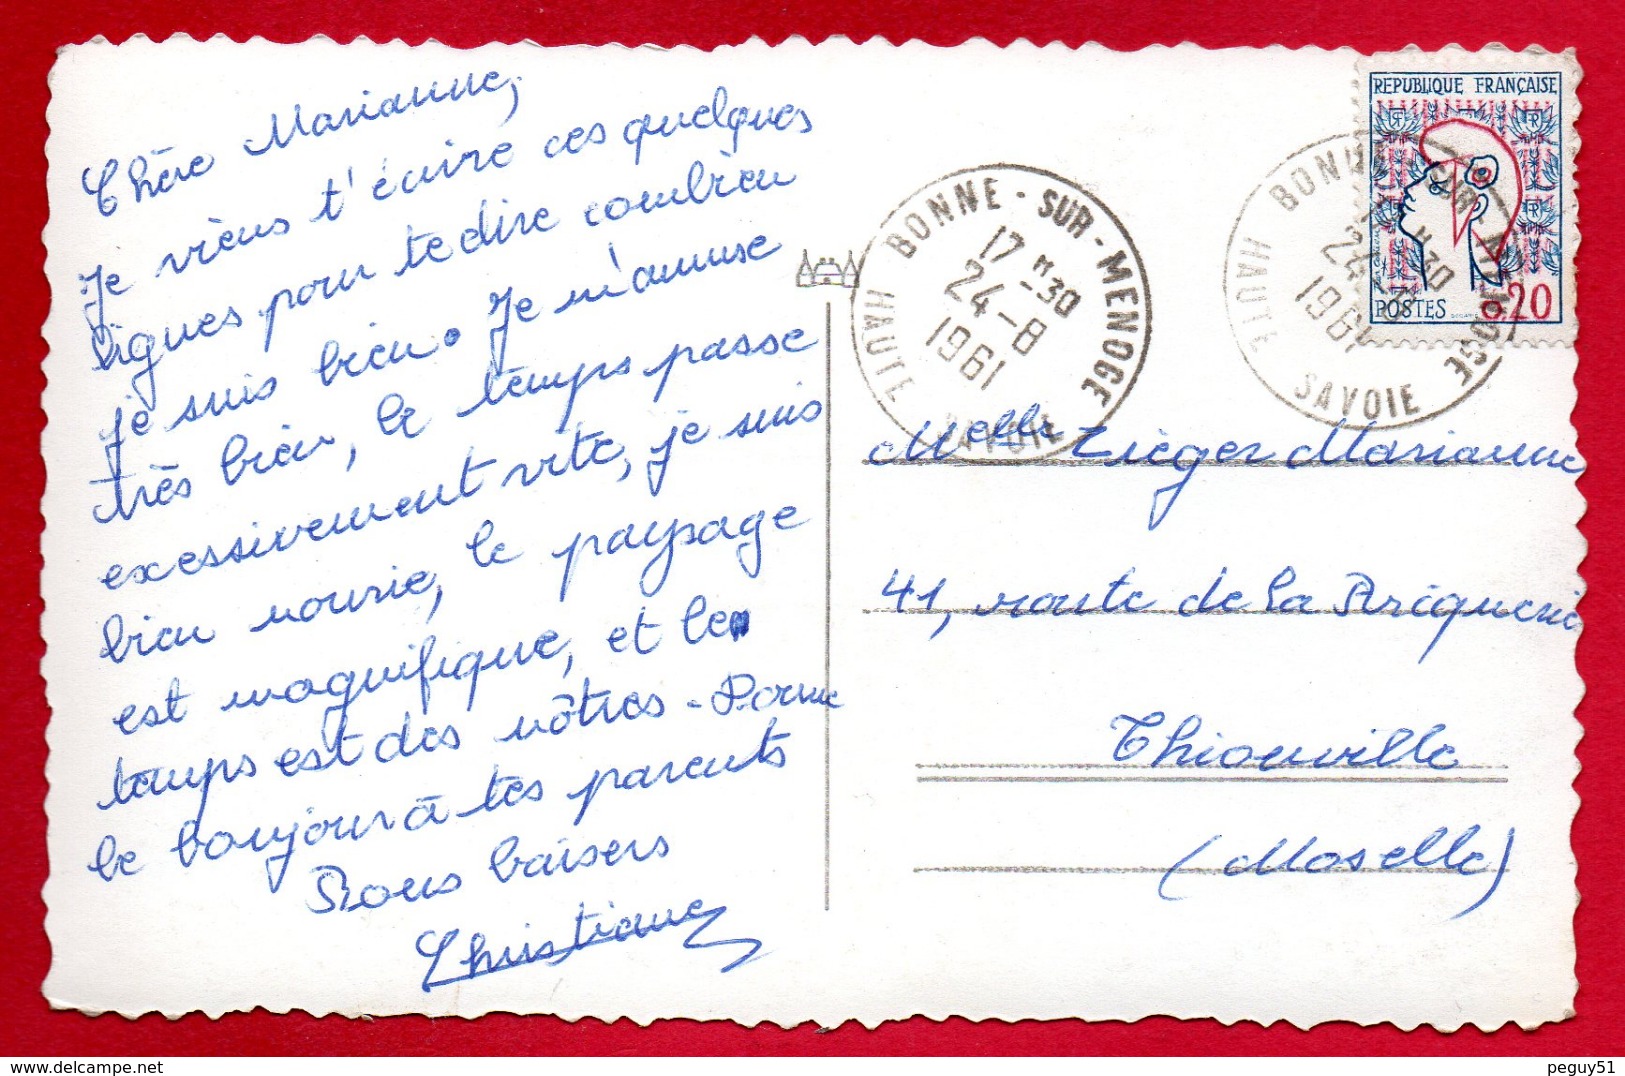 Chère Marianne,
Je viens t'écrire ces quelques
lignes pour te dire combien
je suis bien. Je m'amuse
très bien, le temps passe
excessivement vite, je suis
bien nourrie, le paysage
est magnifique, et le
temps est des nôtres - Donne
le bonjour à tes parents
Bons baisers
Christiane
REPUBLIQUE FRANÇAISE
POSTES
0,20
BONNE-SUR-MENOGE
17H30
24-8
1961
HAUTE SAVOIE
BONNE-SUR-MENOGE
17H30
24-8
1961
HAUTE SAVOIE
Melle Zièger Marianne
41, route de la Briquerie
Thionville
(Moselle)
peguy51